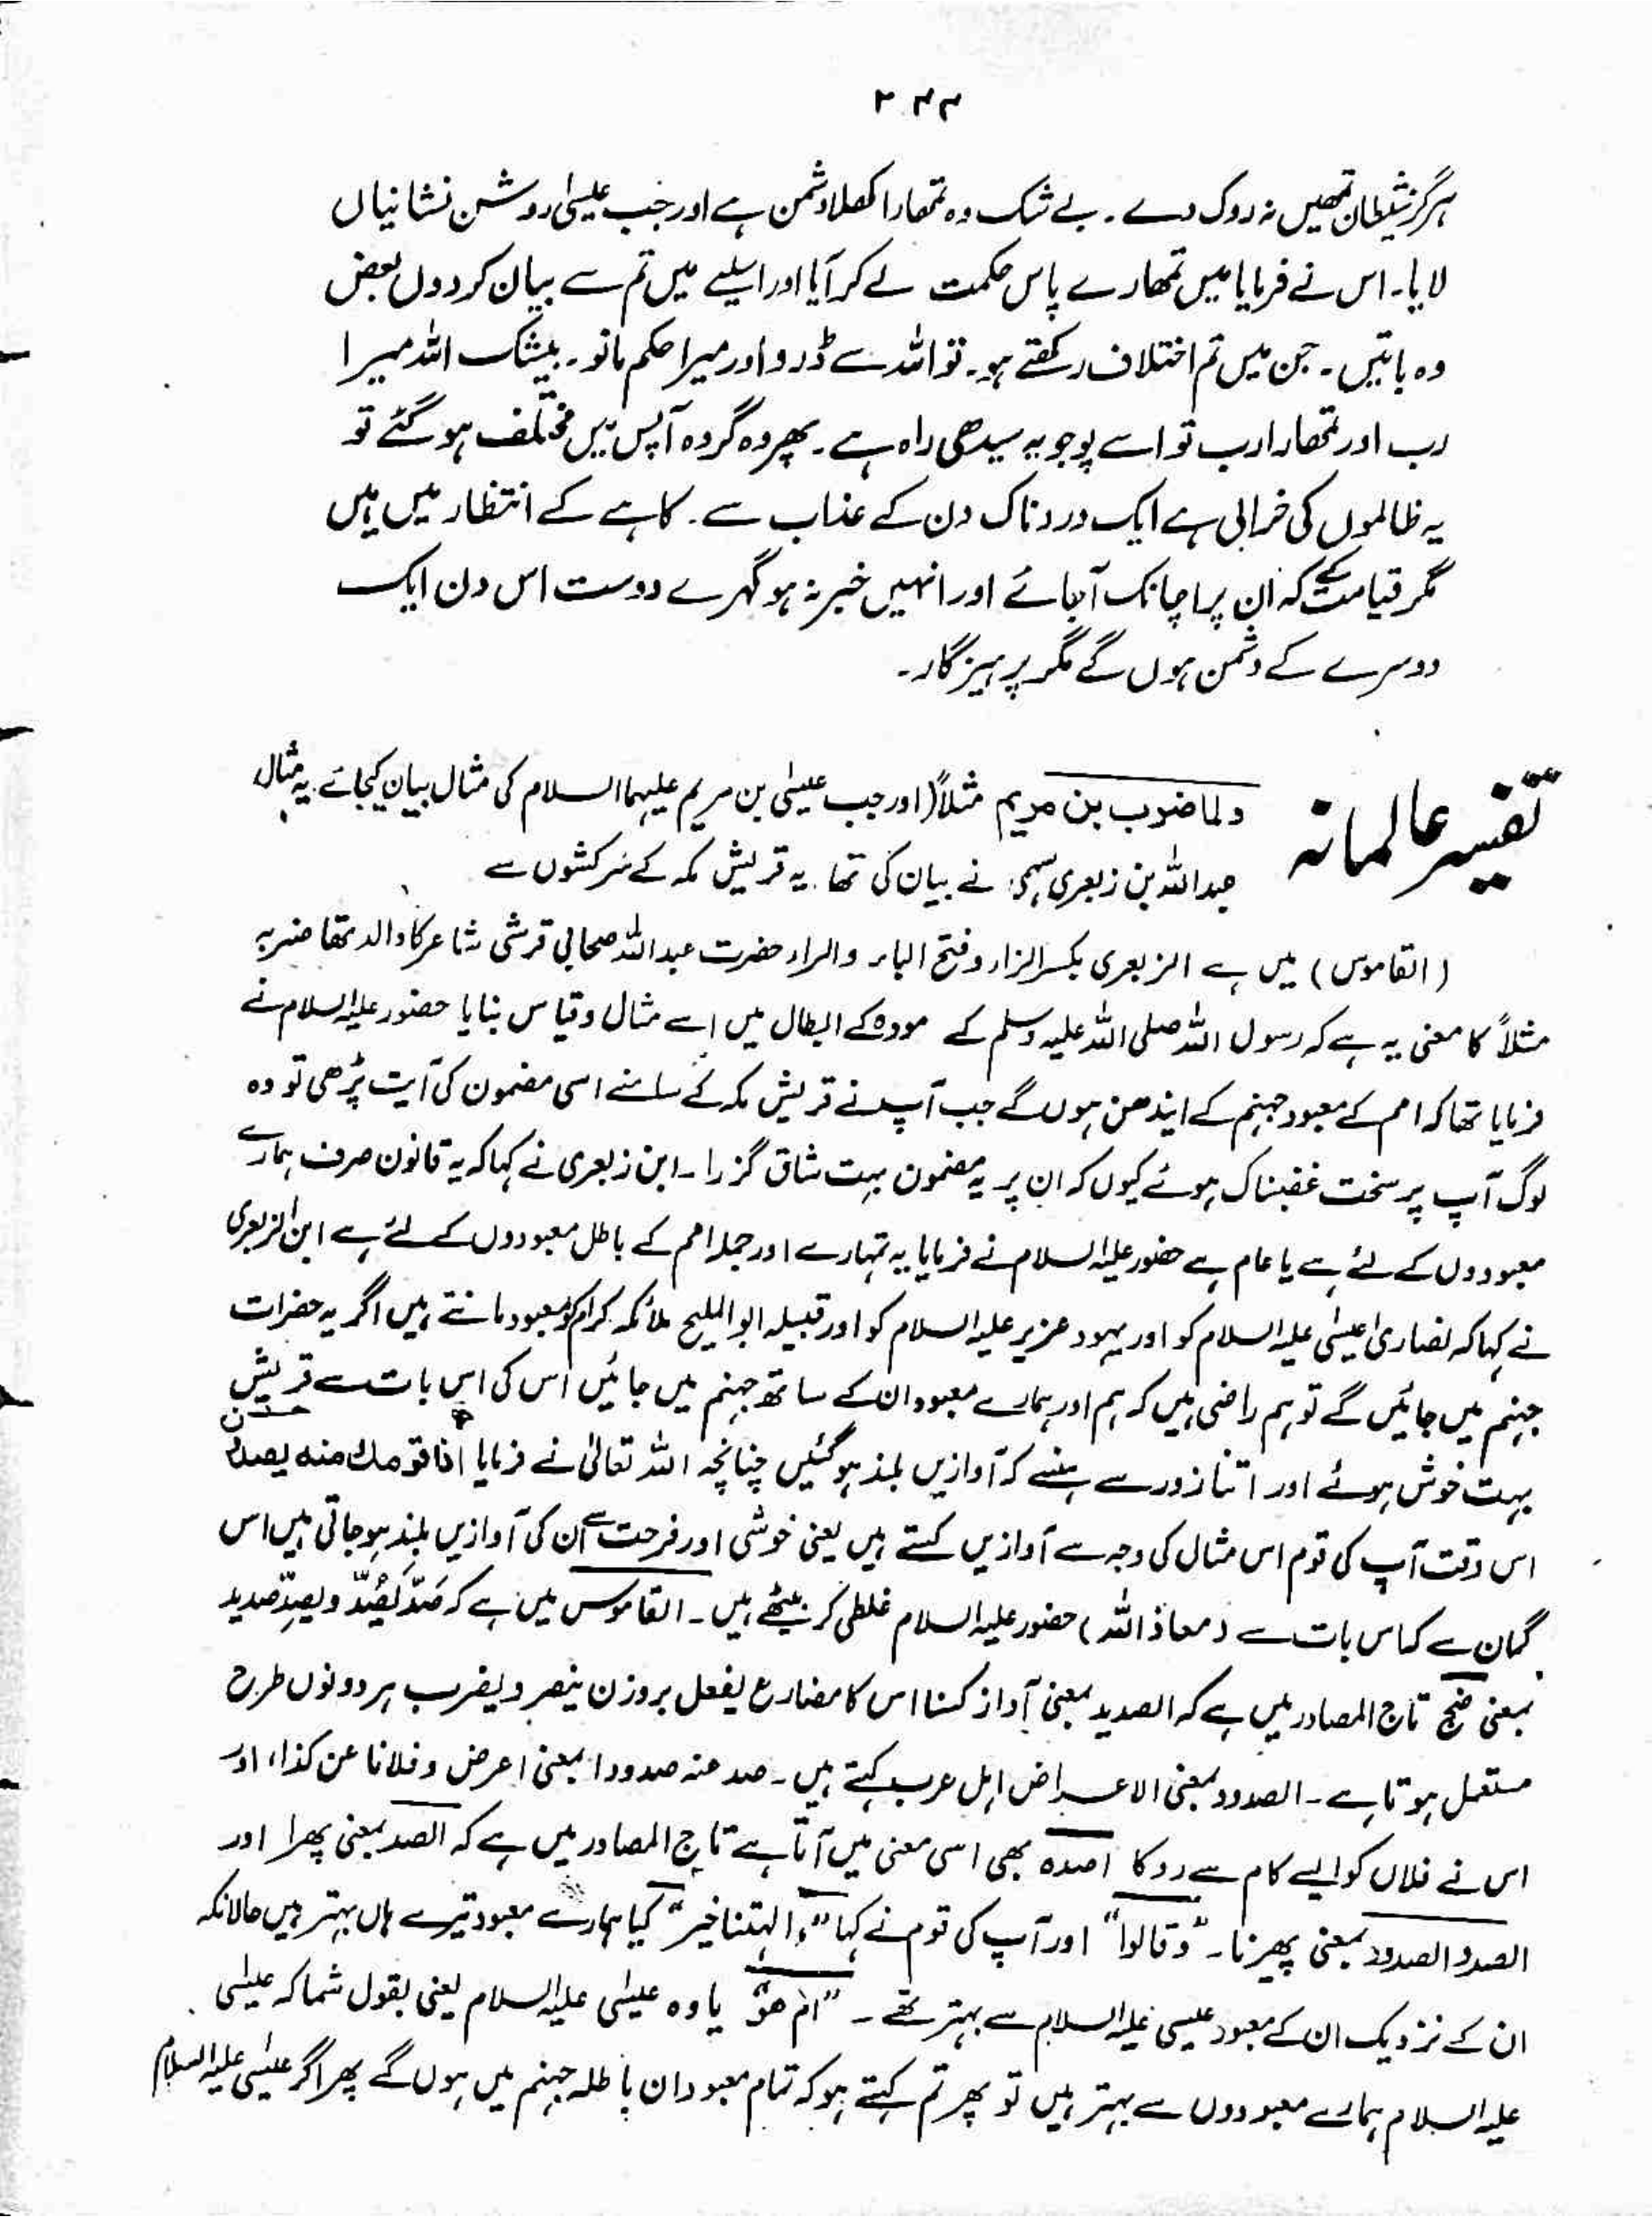 ۲۴۴
ہرگز شیطان تمھیں نہ روک دے ۔ بے شک وہ تمھارا کھلا دشمن ہے اور جب عیسیٰ روشن نشانیاں
لایا۔ اس نے فرمایا میں تمھارے پاس حکمت لے کر آیا اور ایلیے میں تم سے بیان کر دوں بعض
وہ باتیں ۔ جن میں تم اختلاف رکھتے ہو۔ تو اللہ سے ڈرو اور میرا حکم مانو۔ بیشک اللہ میرا
رب اور تمھارا رب تو اسے پوجو یہ سیدھی راہ ہے ۔ پھر وہ گروہ آپس میں مختلف ہو گئے تو
یہ ظالموں کی خرابی ہے ایک دردناک دن کے عذاب سے ۔ کاہے کے انتظار میں ہیں
مگر قیامت کے کہ ان پر اچانک آجائے اور انہیں خبر نہ ہو گہرے دوست اس دن ایک
دوسرے کے دشمن ہوں گے مگر پرہیزگار ۔
تفسیر عالمانہ
ولما ضرب بن مریم مثلاً (اور جب عیسیٰ بن مریم علیہما السلام کی مثال بیان کیجائے یہ مثال
عبداللہ بن زبعری سہمی نے بیان کی تھا ۔ یہ قریش مکہ کے سرکشوں سے
(القاموس) میں ہے الزبعری بکسر الزاء وفتح الباء والراء حضرت عبداللہ صحابی قرشی شاعر کا والد تھا ضربہ
مثلاً کا معنی یہ ہے کہ رسول اللہ صلی اللہ علیہ وسلم کے مودہ کے ابطال میں اسے مثال و قیاس بنایا حضور علیہ السلام نے
فرمایا تھا کہ امم کے معبود جہنم کے ایندھن ہوں گے جب آپ نے قریش مکہ کے سامنے اسی مضمون کی آیت پڑھی تو وہ
لوگ آپ پر سخت غضبناک ہوئے کیوں کہ ان پر یہ مضمون بہت شاق گزرا ۔ ابن زبعری نے کہا کہ یہ قانون صرف ہمارے
معبودوں کے لئے ہے یا عام ہے حضور علیہ السلام نے فرمایا یہ تمہارے اور جملہ امم کے باطل معبودوں کے لئے ہے ابن الزبعری
نے کہا کہ نصاریٰ عیسیٰ علیہ السلام کو اور یہود عزیر علیہ السلام کو اور قبیلہ ابو الملیح ملائکہ کرام کو معبود مانتے ہیں اگر یہ حضرات
جہنم میں جائیں گے تو ہم راضی ہیں کہ ہم اور ہمارے معبود ان کے ساتھ جہنم میں جائیں اس کی اس بات سے قریش
بہت خوش ہوئے اور اتنا زور سے ہنسے کہ آوازیں بلند ہو گئیں چنانچہ اللہ تعالیٰ نے فرمایا اذا قومك منه یصدون
اس وقت آپ کی قوم اس مثال کی وجہ سے آوازیں کستے ہیں یعنی خوشی اور فرحت سے ان کی آوازیں بلند ہو جاتی ہیں اس
گمان سے کہ اس بات سے (معاذ اللہ) حضور علیہ السلام غلطی کر بیٹھے ہیں ۔ القاموس میں ہے کہ صَدَّ یَصُدُّ ویصِدّ صدید
بمعنی ضج تاج المصادر میں ہے کہ الصدید بمعنی آواز کسنا اس کا مضارع یفعل بروزن ینصر و یضرب ہر دونوں طرح
مستعمل ہوتا ہے ۔ الصدود بمعنی الاعراض اہل عرب کہتے ہیں ۔ صد عنہ صدودا بمعنی اعرض و فلانا عن کذا، اور
اس نے فلاں کو ایسے کام سے روکا اصدہ بھی اسی معنی میں آتا ہے تاج المصادر میں ہے کہ الصد بمعنی پھرا اور
الصد والصدود بمعنی پھیرنا ۔ ”وقالوا“ اور آپ کی قوم نے کہا ”ءالہتنا خیر“ کیا ہمارے معبود تیرے ہاں بہتر ہیں حالانکہ
ان کے نزدیک ان کے معبود عیسی علیہ السلام سے بہتر تھے ۔ ”ام ھو“ یا وہ عیسٰی علیہ السلام یعنی بقول شما کہ عیسٰی
علیہ السلام ہمارے معبودوں سے بہتر ہیں تو پھر تم کہتے ہو کہ تمام معبودان باطلہ جہنم میں ہوں گے پھر اگر عیسٰی علیہ السلام